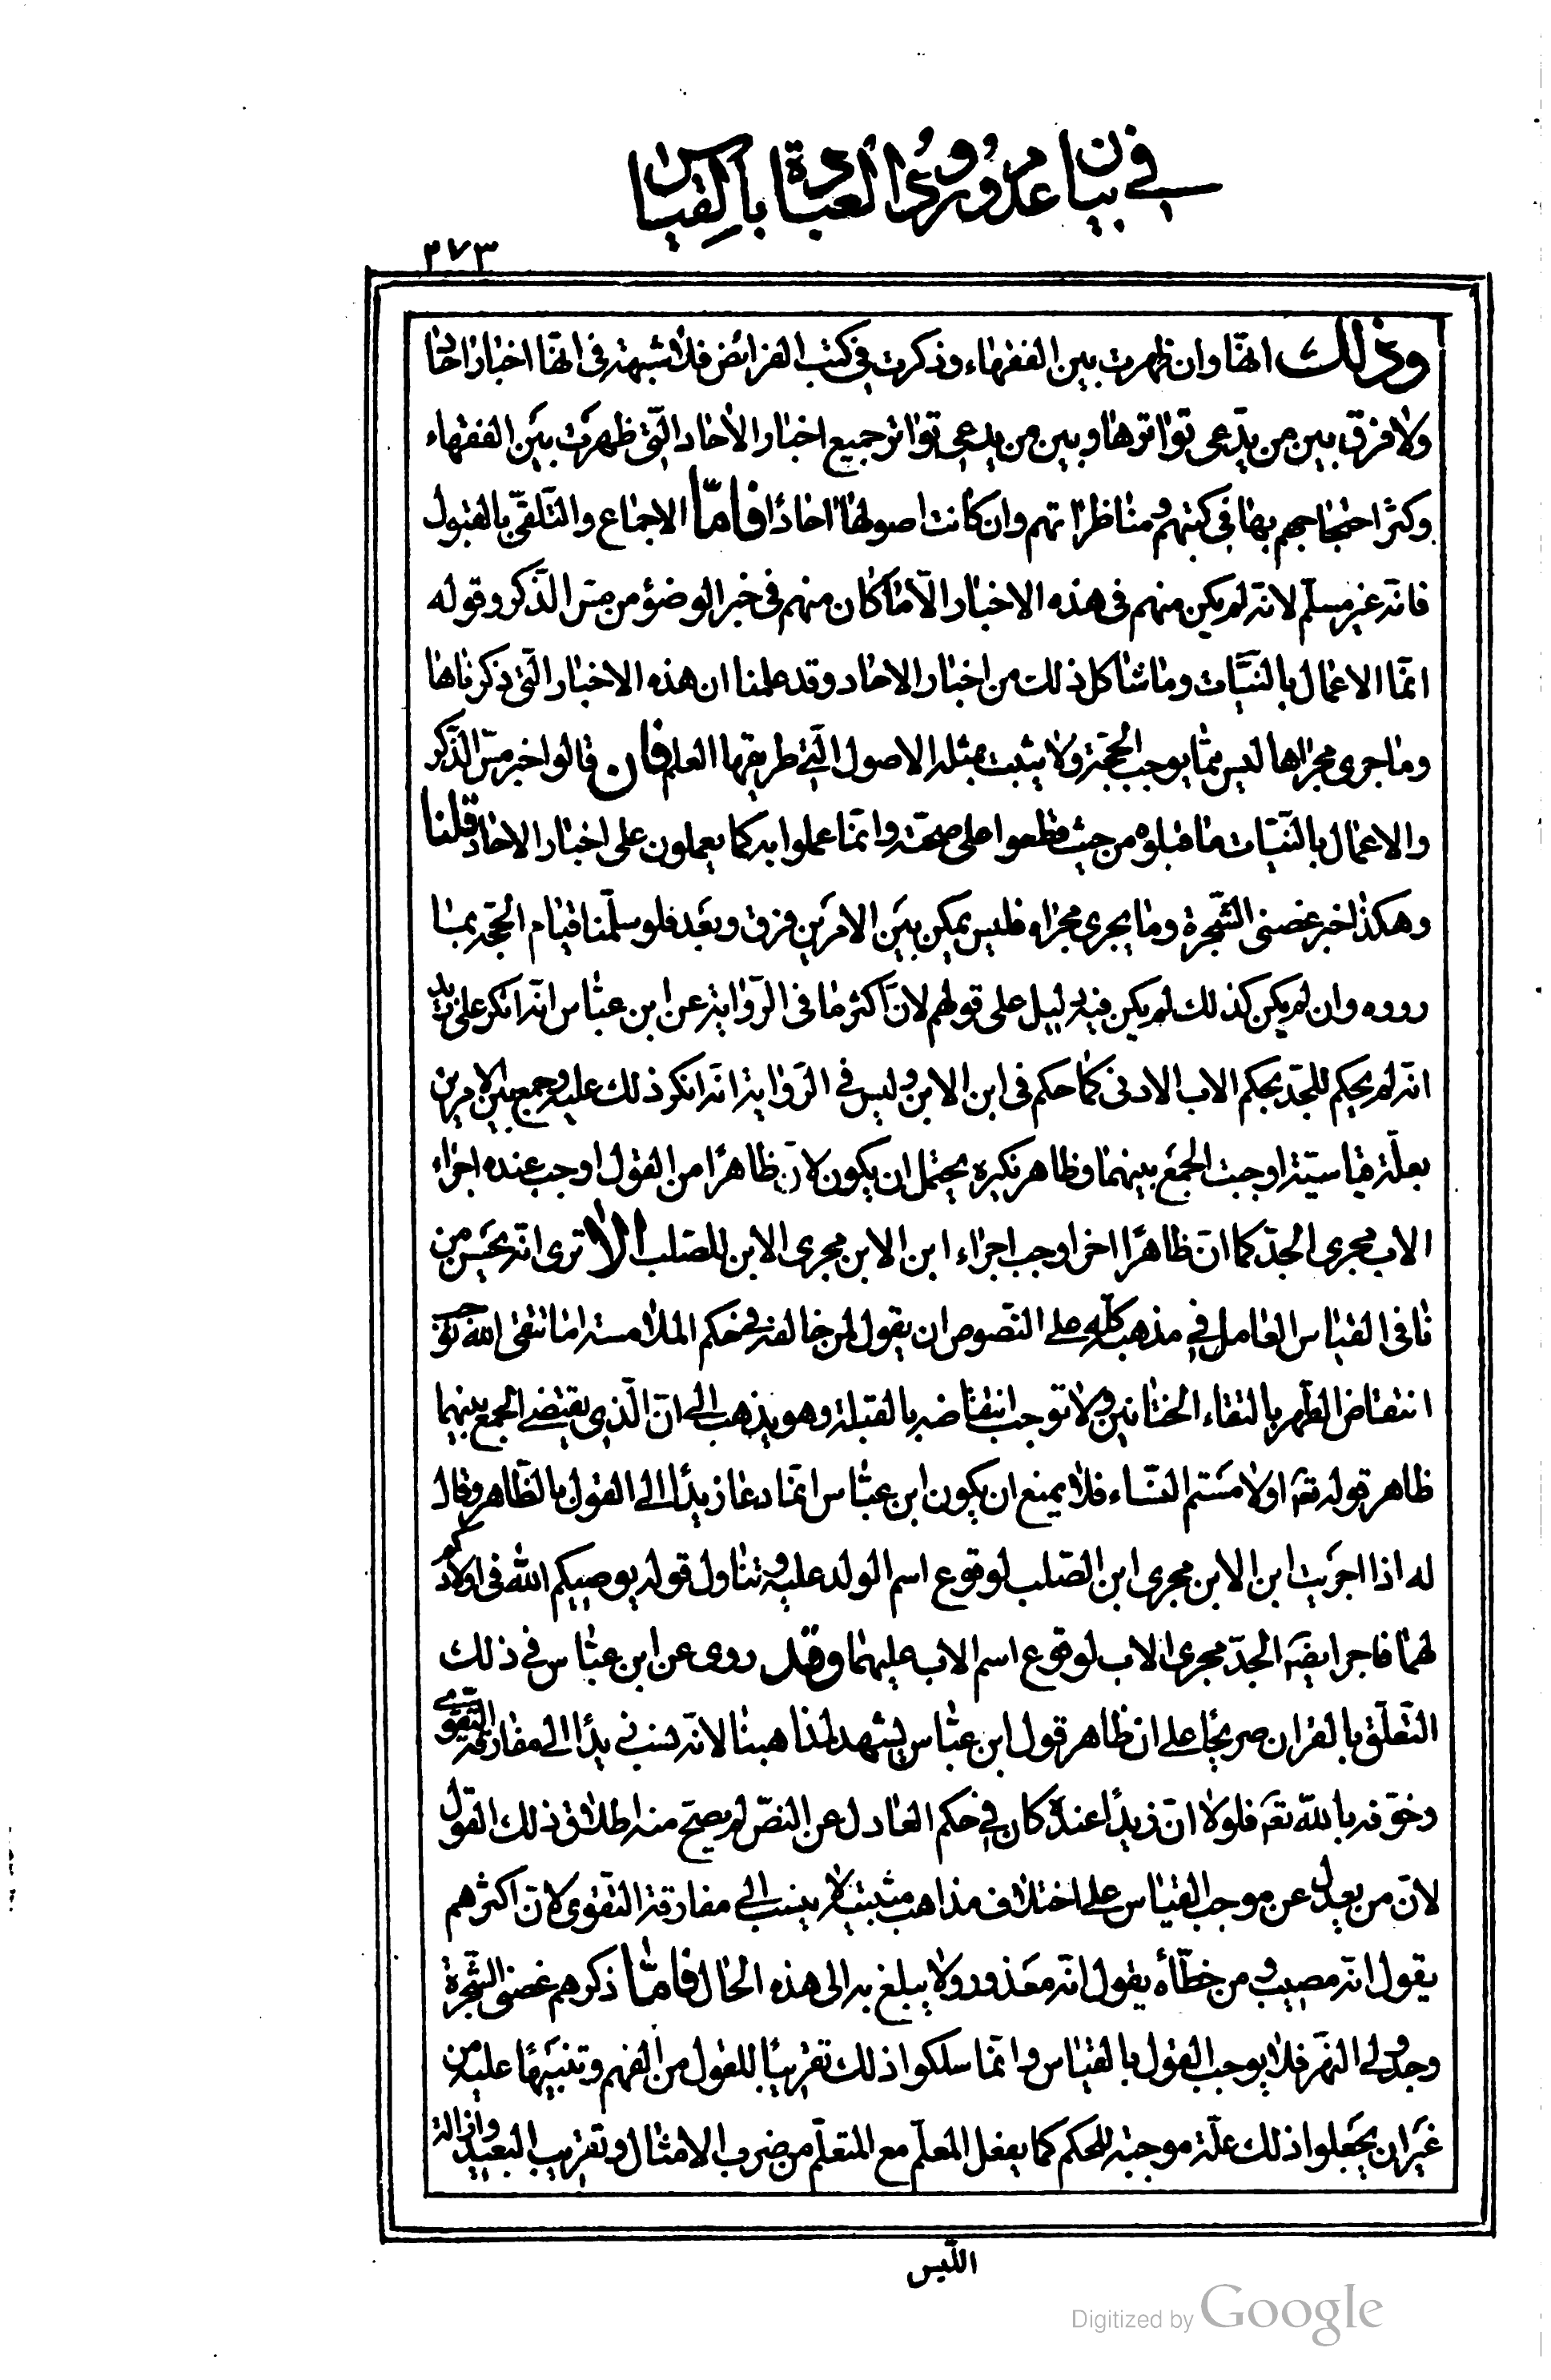 في بيان عدم ورود العبادة بالقياس
٣٧٣
وذلك انها وان ظهرت بين الفقهاء وذكرت في كتب الفرائض فلا شبهة في انها اخبار احاد
ولا فرق بين من يدّعى تواترها وبين من يدعى تواتر جميع اخبار الاحاد الّتى ظهرت بين الفقهاء
وكثر احتجاجهم بها في كتبهم ومناظراتهم وان كانت اصولها احادًا فامّا الاجماع والتّلقّى بالقبول
فانّه غير مسلّم لانّه لم يكن منهم فى هذه الاخبار الّا ما كان منهم فى خبر الوضوء من مسّ الذّكر وقوله
انّما الاعمال بالنيّات وما شاكل ذلك من اخبار الاحاد وقد علمنا ان هذه الاخبار الّتى ذكرناها
وما جرى مجراها ليس ممّا يوجب الحجّة ولا يثبت بمثله الاصول الّتى طريقها العلم فان قالوا خبر مسّ الذّكر
والاعمال بالنّيّات ما قبلوه من حيث قطعوا على صحّته وانّما عملوا به كما يعملون على اخبار الاحاد قلنا
وهكذا خبر غصنى الشّجرة وما يجرى مجراه فليس يمكن بين الامرين فرق وبعد فلو سلّمنا قيام الحجّة بما
رووه وان لم يكن كذلك لم يكن فيه دليل على قولهم لانّ اكثر ما فى الرّواية عن ابن عبّاس انّه انكر على زيد
انّه لم يحكم للجدّ بحكم الاب الادنى كما حكم فى ابن الابن وليس فى الرّواية انّه انكر ذلك عليه وجمع بين الامرين
بعلّة قياسيّة اوجبت الجمع بينهما وظاهر نكيره يحتمل ان يكون لانّ ظاهرًا من القول اوجب عنده اجراء
الاب مجرى الجدّ كما انّ ظاهرًا اخر اوجب اجراء ابن الابن مجرى الابن للصّلب الا ترى انّه يحسن من
نافى القياس العامل في مذهبه كلّه على النّصوص ان يقول لمن خالفه فى حكم الملامسة اما تتقى الله توجب
انتقاض الطّهر بالتقاء الختانين ولا توجب انتقاضه بالقبلة وهو يذهب الى انّ الّذى يقتضى الجمع بينهما
ظاهر قوله تعَ او لامستم النّساء فلا يمنع ان يكون ابن عبّاس انّما دعا زيدًا الى القول بالظّاهر وقال
له اذا اجريت ابن الابن مجرى ابن الصّلب لوقوع اسم الولد عليه وتناول قوله يوصيكم الله فى اولادكم
لهما فاجر ايضَه الجدّ مجرى الاب لوقوع اسم الاب عليهما وقد روى عن ابن عبّاس فى ذلك
التّعلّق بالقران صريحًا على ان ظاهر قول ابن عبّاس يشهد لمذاهبنا لانّه نسب زيدًا الى مفارقة التّقوى
وخوّفه بالله تعَ فلولا انّ زيدًا عنده كان في حكم العادل عن النصّ لم يصحّ منه اطلاق ذلك القول
لانّ من يعدل عن موجب القياس على اختلاف مذاهب مثبتيه لا ينسب الى مفارقة التّقوى لانّ اكثرهم
يقول انّه مصيب ومن خطّأه يقول انّه معذور ولا يبلغ به الى هذه الحال فامّا ذكرهم غصنى الشّجرة
وجدولى النهر فلا يوجب القول بالقياس وانّما سلكوا ذلك تقريبًا للقول من الفهم وتنبيهًا عليه من
غير ان يجعلوا ذلك علّة موجبة للحكم كما يفعل المعلّم مع المتعلّم من ضرب الامثال وتقريب البعيد وازالة
اللّبس
Digitized by Google